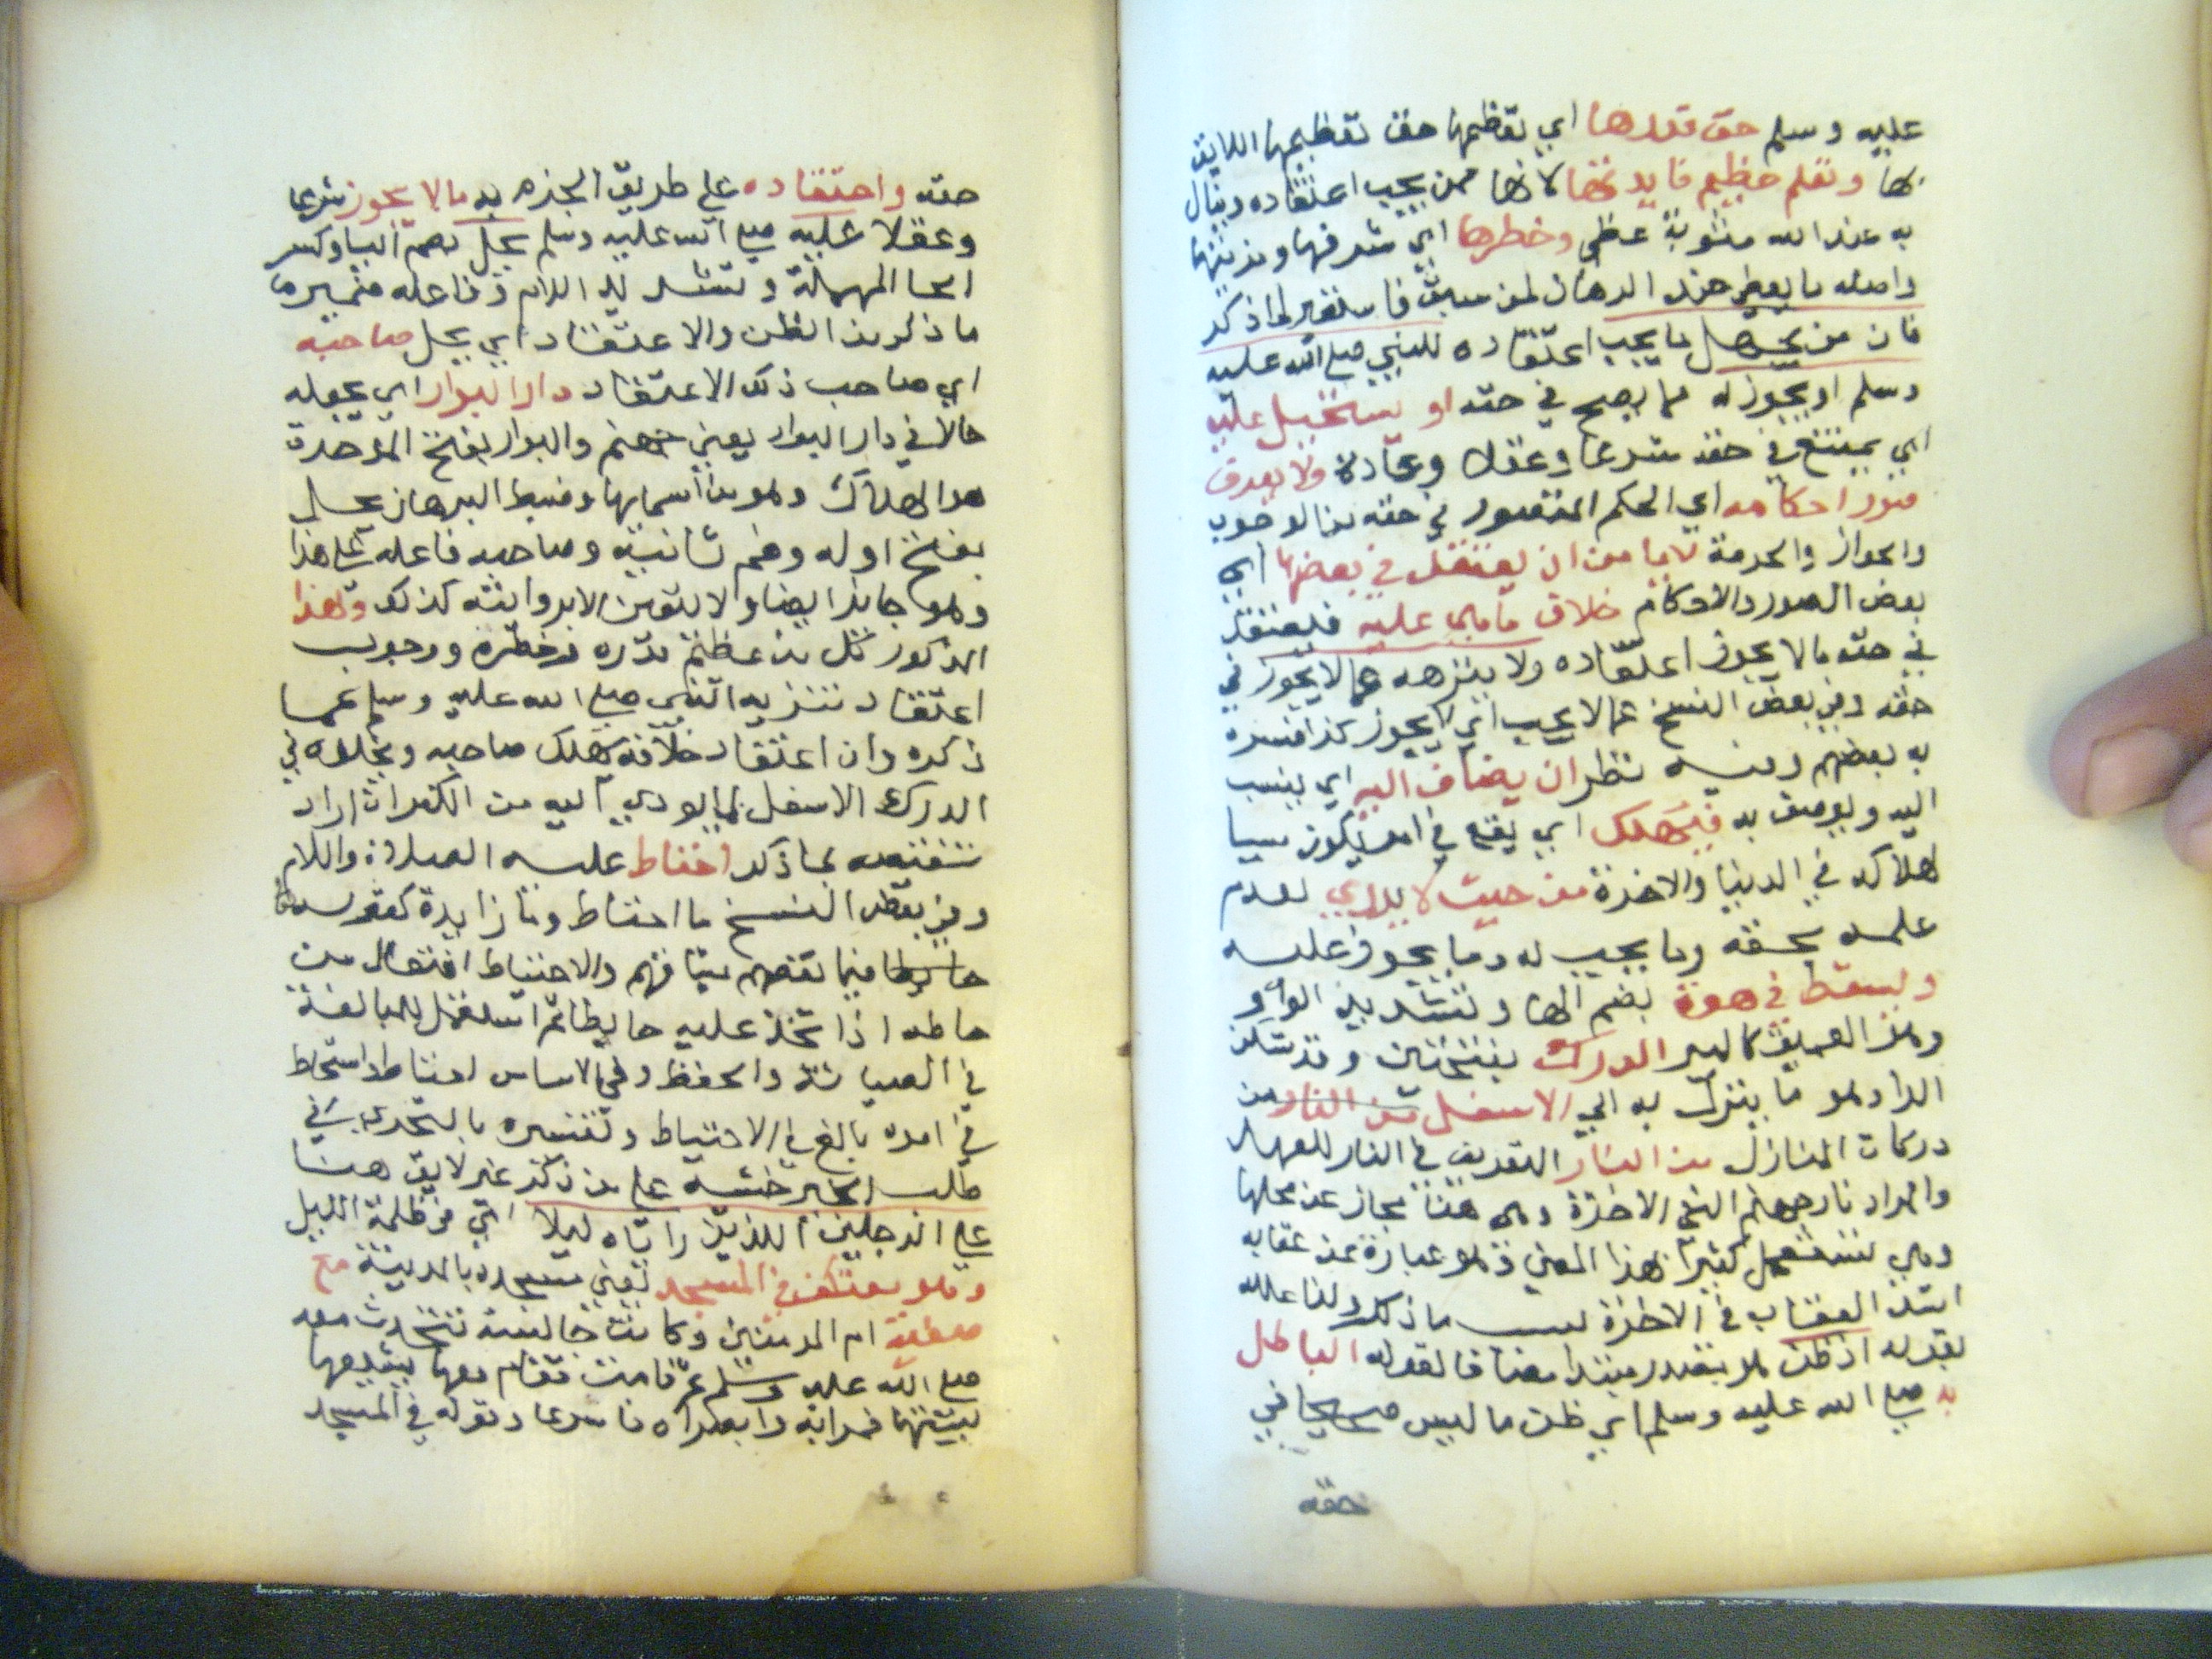 عليه وسلم حق قدرها اي تعظيمها حق تعظيمها اللايق
بها وتعلم عظيم فايدتها لانها ممن يجب اعتقاده وينال
به عند الله مثوبة عظمى وخطرها اي شرفها ومزيتها
فان من يجهل ما يجب اعتقاده للنبي صلى الله عليه
وسلم او يجوز له مما يصح في حقه او يستحيل عليه
اي يمتنع في حقه شرعا وعقلا وعادة ولا يعرف
صور احكامه اي الحكم المتصور في حقه من الوجوب
والجواز والحرمة لا يامن ان يعتقد في بعضها اي
بعض الصور والاحكام خلاف ما هي عليه فيعتقد
في حقه ما لا يجوز اعتقاده ولا ينزهه عما لا يجوز في
حقه وفي بعض النسخ عما لا يجب اي لا يجوز كذا فسره
به بعضهم وفيه نظر ان يضاف اليه اي ينسب
اليه ويوصف به فيهلك اي يقع في امر يكون سببا
لهلاكه في الدينا والاخرة من حيث لا يدري لعدم
علمه بحقه وما يجب له وما يجوز عليه
ويسقط في هوة بضم الها وتشديد الواو
وهو العميق كالبير الدرك بفتحتين وقد تسكن
الرا وهو ما ينزل به الي الاسفل من النار من
دركات المنازل من النار التعريف في النار للعهد
والمراد نار جهنم التي في الاخرة وهي هنا مجاز عن محلها
وهي تستعمل كثيرا بهذا المعني وهو عبارة عن عقابه
اشد العقاب في الاخرة بسبب ما ذكر ولذا علله
بقوله اذ ظن هو مصدر مبتدا مضاف لقوله الباطل
به صلى الله عليه وسلم اي ظن ما ليس صحيحا في
حقه
حقه واعتقاده على طريق الجزم به ما لا يجوز شرعا
وعقلا عليه صلى الله عليه وسلم يحل بضم اليا وكسر
الحا المهملة وتشديد اللام وفاعله ضمير ما
ما ذكر من الظن والاعتقاد اي يحل صاحبه
اي صاحب ذلك الاعتقاد دار البوار اي يجعله
حالا في دار البوار يعني جهنم والبوار بفتح الموحدة
هو الهلاك وهو من اسمايها وضبط البرهان يحل
بفتح اوله وضم ثانية وصاحبه فاعله على هذا
وهو جايز ايضا ولا يتعين الا بروايته كذلك ولهذا
المذكور كل من عظيم قدره وخطره ووجوب
اعتقاد تنزيه النبي صلى الله عليه وسلم عما
ذكره وان اعتقاد خلافه يهلك صاحبه ويخلده في
الدرك الاسفل لما يودي اليه من الكفران اراد
تنقيصه بما ذكر احتاط عليه الصلاة والسلام
وفي بعض النسخ ما احتاط وما زايدة كقوله
فبما نقضهم ميثاقهم والاحتياط افتعال من
حاطه اذا اتخذ عليه حايطا ثم استعمل للمبالغة
في الصيانة والحفظ وفي الاساس احتاط واستحاط
في امره بالغ في الاحتياط وتفسيره بالتحري في
طلب الخير خشيه على من ذكر غير لايق هنا
على الرجلين اللذين راياه ليلا اي في ظلمة الليل
وهو معتكف في المسجد يعني مسجده بالمدينة مع
صفية ام المومنين وكانت جالسة تتحدث معه
صلى الله عليه وسلم ثم قامت فقام معها يشيعها
لبيتها فمرا به وابصراه فاسرعا وقوله في المسجد